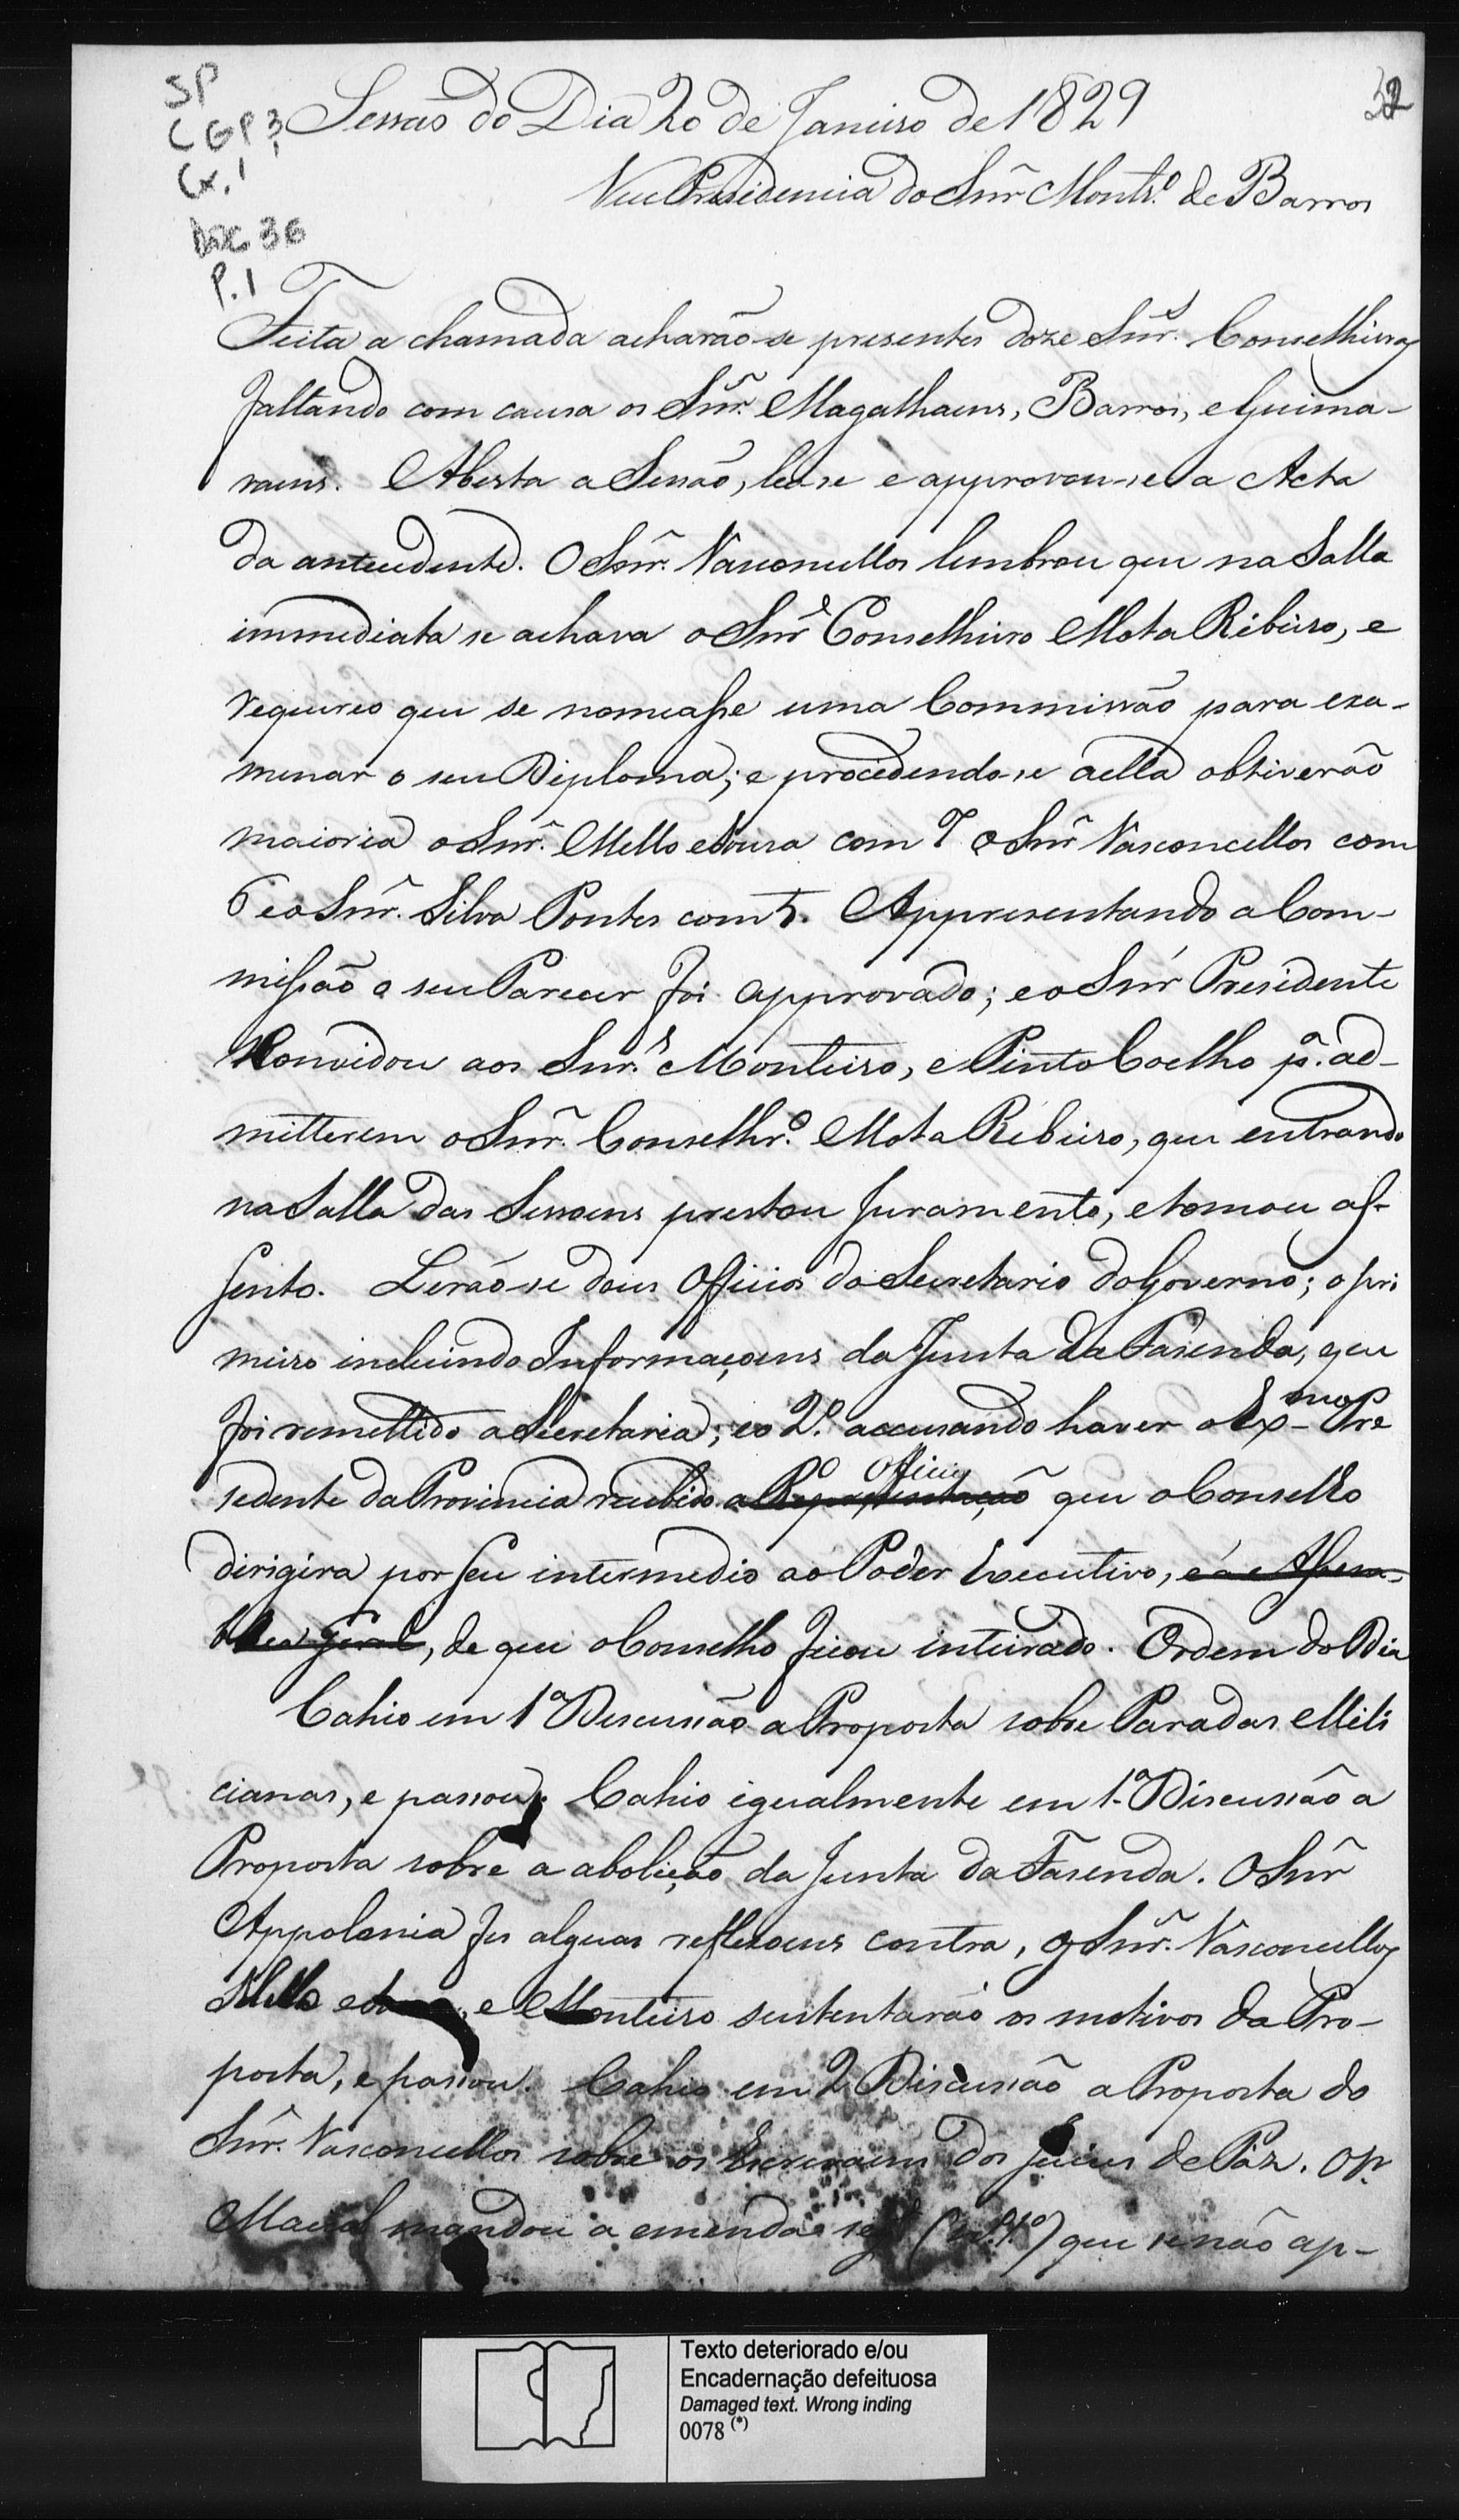 SP
CGP3
Cx. 1
DOC 36
P. 1
32
Sessaõ do Dia 20 de Janeiro de 1829
Vice Presidencia do Snr̃ Montr.º de Barros
Feita a chamada acharaõ-se presentes doze Snr.s Conselheiros
faltando com causa os Snr.s Magalhaens, Barros, e Guima-
raens. Aberta a Sessaõ, leo-se e approvou-se a Acta
da antecedente. O Snr̃. Vasconcellos lembrou que na Salla
immediata se achava o Snr̃ Conselheiro Mota Ribeiro, e
requereo que se nomeasse uma Commissaõ para exa-
minar o seu Diploma; e procedendo-se a ella obtiveraõ
maioria o Snr̃. Mello e Souza com 7 o Snr̃ Vasconcellos com
6 e o Snr̃. Silva Pontes com 5. Appresentando a Com-
missaõ o seu Parecer foi approvado; e o Snr̃ Presidente
Convidou aos Snr.s Monteiro, e Pinto Coelho p.ª ad-
mitterem o Snr̃. Conselhr.º Mota Ribeiro, que entrando
na Salla das Sessoens prestou Juramento, e tomou as-
sento. Leraõ-se dous Officios do Secretario do Governo; o pri
meiro incluindo Informaçoens da Junta da Fasenda, que
foi remettido a Secretaria; e o 2.º accusando haver o Ex-mo Pre
sedente da Provincia recebido a Representaçaõ o Officio que o Conselho
dirigira por seu intermedio ao Poder Executivo, e á Assem-
blea Geral, de que o Conselho ficou inteirado. Ordem do Dia
Cahio em 1ª Discussaõ a Proposta sobre Paradas Mili
cianas, e passou. Cahio igualmente em 1.ª Discussaõ a
Proposta sobre a aboliçaõ da Junta da Fasenda. O Snr̃
Appolonia fes alguas reflexoens contra, os Snr̃. Vasconcellos
Mello e Souza, e Monteiro sustentaraõ os motivos da Pro-
posta, e passou. Cahio em 2 Discussaõ a Proposta do
Snr̃. Vasconcellos sobre os Escrivaens dos Juizes de Paz. O Sr.
Maciel mandou a emenda seg.e (n.º 1.º) que se não ap-
Texto deteriorado e/ou
Encadernação defeituosa
Damaged text. Wrong inding
0078 (*)